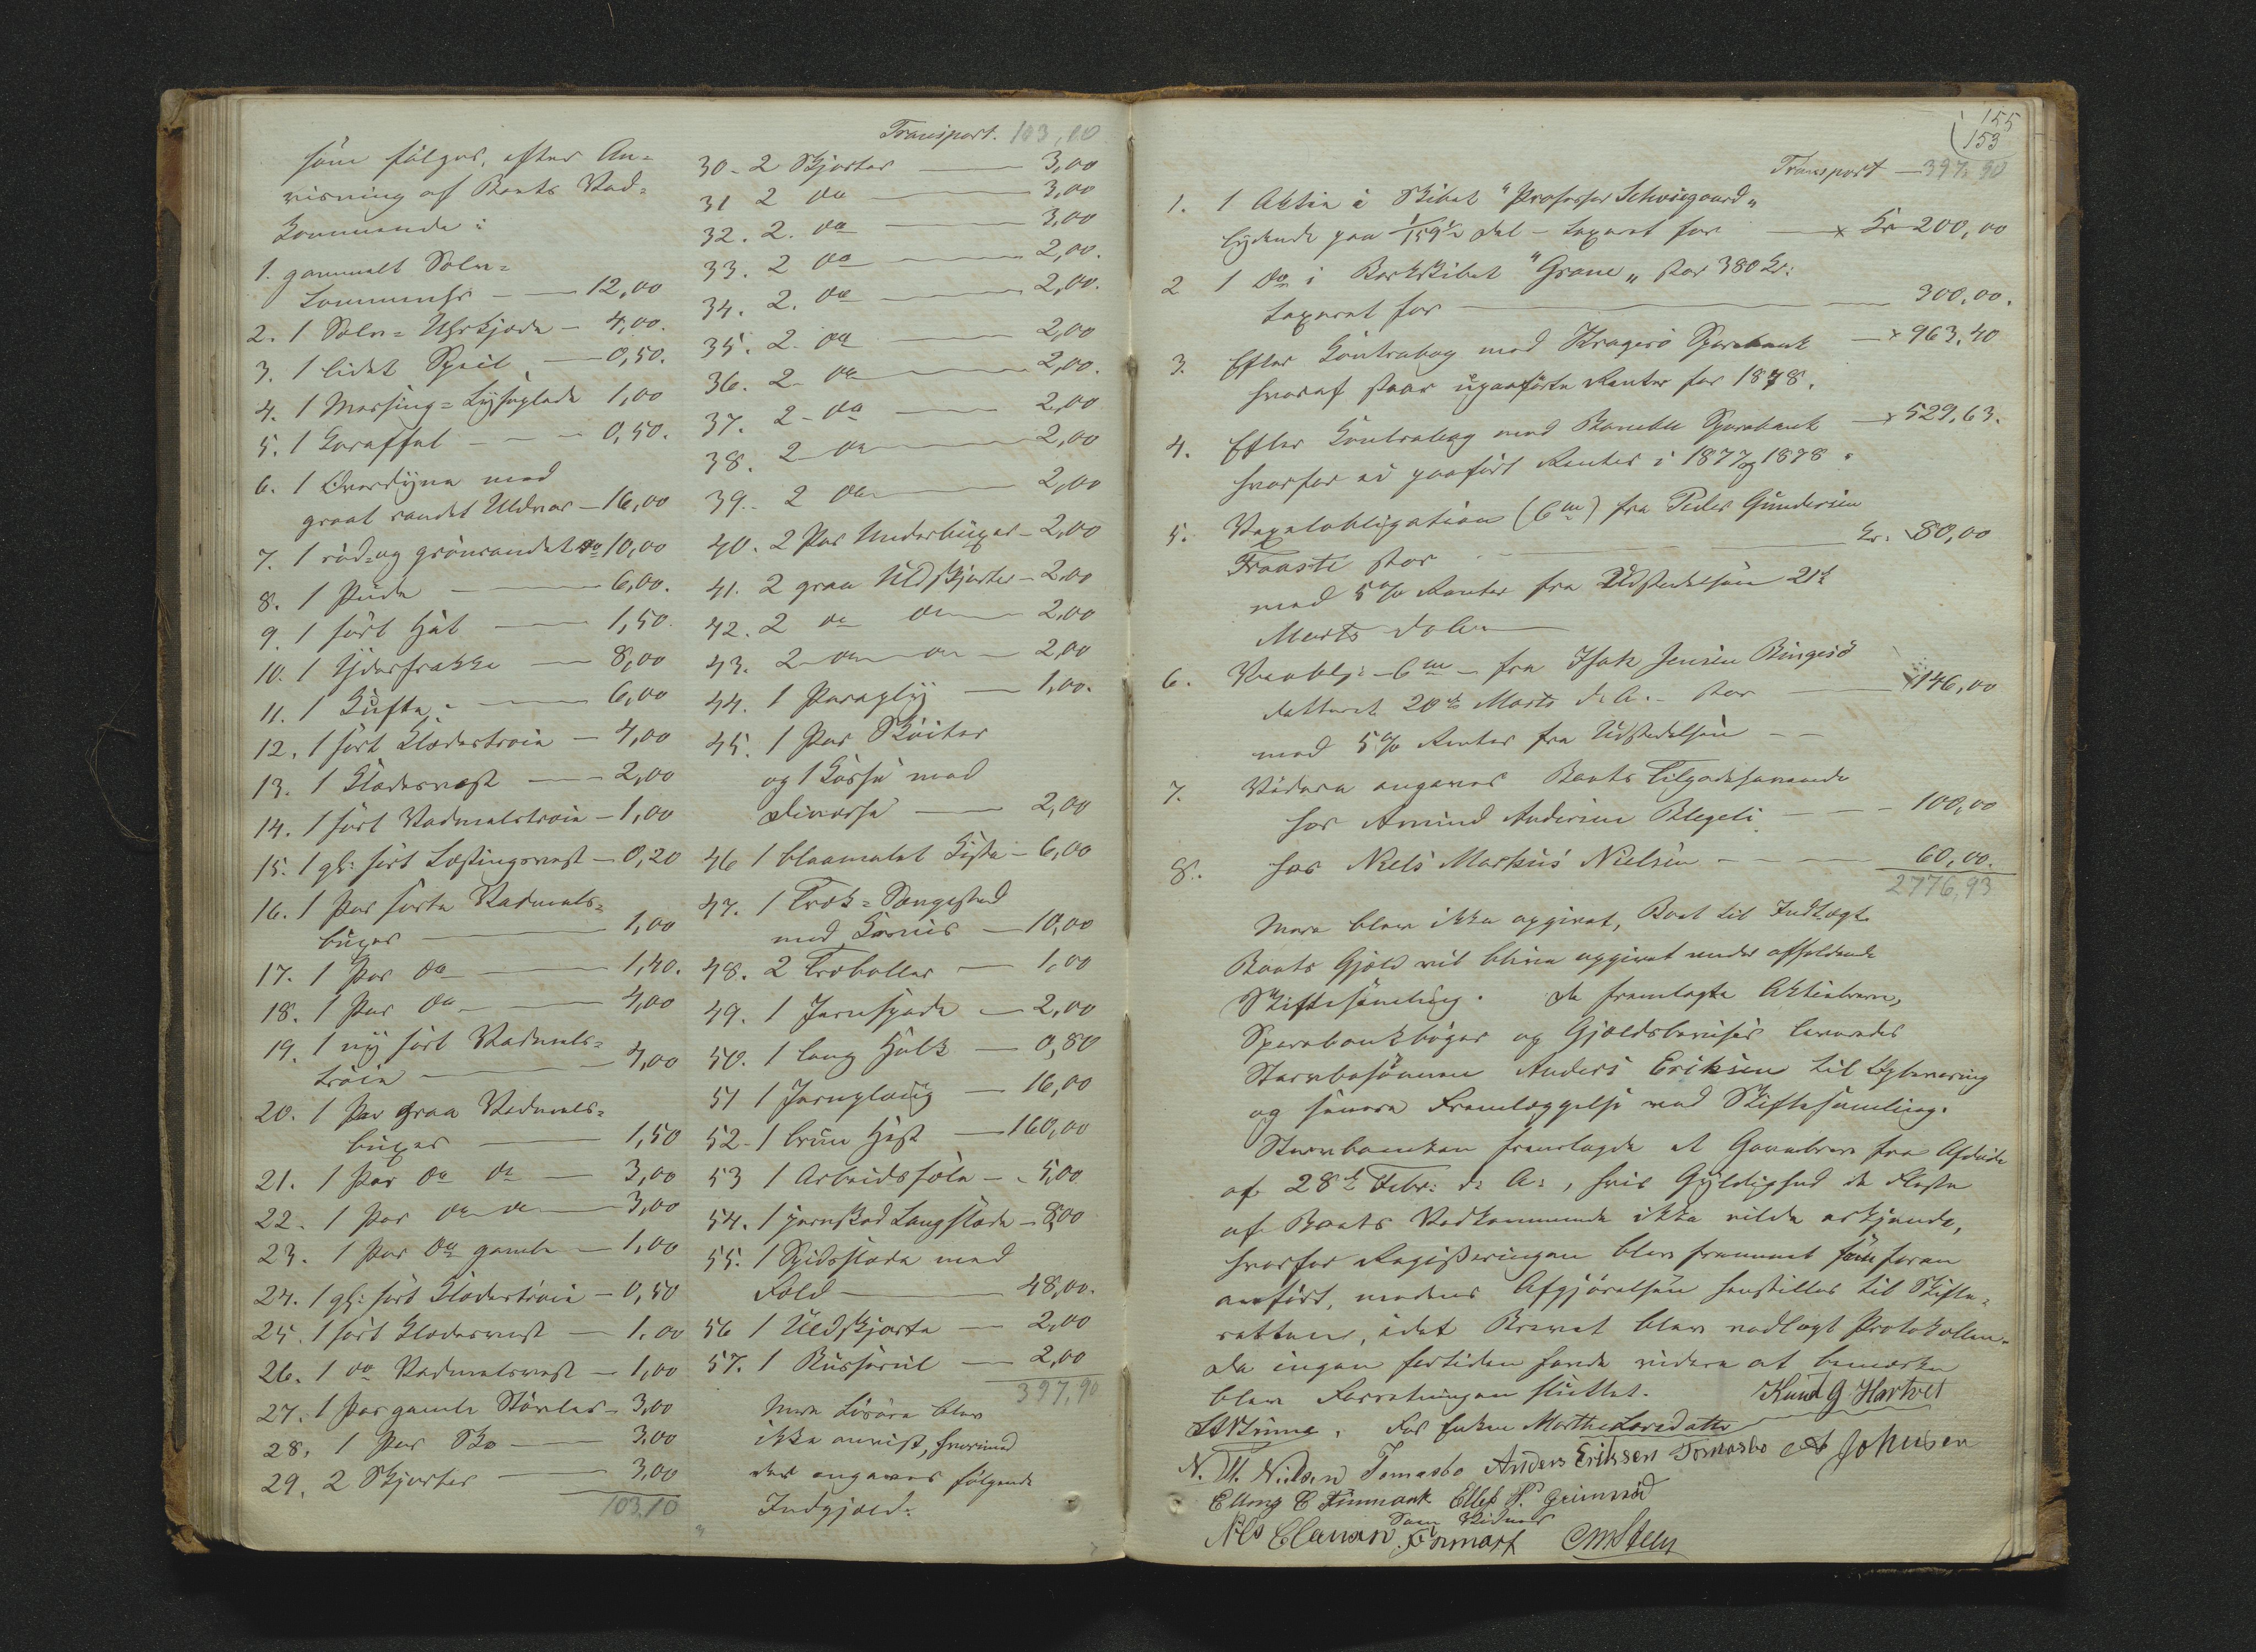 som følger, efter An=
visning af Boets Ved=
kommende:
1. gammelt Sølv=
Lommeuhr — 12,00
2. 1 Sølv=Uhrkjæde — 4,00.
3. 1 lidet Speil — 0,50.
4. 1 Messing=Lyseplade 1,00
5. 1 Karaffel — 0,50.
6. 1 Overdyne med
graat randet Uldvar — 16,00
7. 1 rød= og grønrandet do 10,00
8. 1 Pude — 6,00.
9. 1 sort Hat — 1,50
10. 1 Yderfrakke — 8,00
11. 1 Kufte — 6,00
12. 1 sort Klædestrøie — 4,00
13. 1 Klædesvest — 2,00
14. 1 sort Vadmelstrøie — 1,00
15. 1 gl: sort Lastingsvest — 0,20
16. 1 Par sorte Vadmels=
buxer — 1,00
17. 1 Par do — 1,40.
18. 1 Par do — 4,00
19. 1 ny sort Vadmels=
trøie — 4,00
20. 1 Par graa Vadmels=
buxer — 1,50
21. 1 Par do do — 3,00
22. 1 Par do do — 3,00
23. 1 Par do gamle — 1,00
24. 1 gl: sort Klædestrøie — 0,50
25. 1 sort Klædesvest — 1,00
26. 1 do Vadmelsvest — 1,00
27. 1 Par gamle Støvler — 3,00
28. 1 Par Sko — 3,00
29. 2 Skjorter — 3,00
103,10
Transport. 103,10
30. 2 Skjorter — 3,00
31 2 do — 3,00
32. 2. do — 3,00
33. 2 do — 2,00.
34. 2. do — 2,00.
35. 2 do — 2,00
36. 2 do — 2,00.
37. 2 do — 2,00
38. 2 do — 2,00
39. 2 do — 2,00
40. 2 Par Underbuxer — 2,00
41. 2 graa Uldskjorter — 2,00
42. 2 do do — 2,00
43. 2 do do — 2,00
44. 1 Paraply — 1,00.
45. 1 Par Skøiter
og 1 Kasse med
diverse — 2,00
46 1 blaamalet Kiste — 6,00
47. 1 Træk=Sengested
med Karnis — 10,00
48. 2 Træboller — 1,00
49. 1 Jernspade — 2,00
50. 1 lang Hulk — 0,80
51 1 Jernploug — 16,00
52. 1 brun Hest — 160,00
53 1 Arbeidssele — 5,00
54. 1 jernskod Langslæde — 8,00
55. 1 Spidsslæde med
Feld — 48,00.
56 1 Uldskjorte — 2,00
57. 1 — 2,00
397,90
Mere Løsøre blev
ikke anvist, hvorimod
der angaves følgende
Indgjæld:
155
153
Transport — 397,90
1. 1 Aktie i Skibet "Professor Schweigaard"
lydende paa 1/159 Del — taxeret for — x Kr 200,00
2 1 do i Barkskibet "Grane" stor 380 Kr:
taxeret for — 300,00.
3. Efter Kontrabog med Kragerø Sparebank — x 963,40
hvoraf staar upaaførte Renter for 1878.
4. Efter Kontrabog med Bamble Sparebank — x 529,63.
hvorfor ei paaført Renter i 1877 og 1878.
5. Vexelobligation (6 m) fra Peder Gundersen
Traaste stor — Kr. 80,00
med 5 % Renter fra Udstedelsen 21de
Marts d. A.
6. Vexobl: — 6 m — fra Isak Jensen Bingesø
dateret 20de Marts d. A. — stor — 146,00
med 5 % Renter fra Udstedelsen — —
7. Videre angaves Boets Tilgodehavende
hos Amund Andersen Blegeli — 100,00
8. hos Niels Markus Nielsen — 60,00.
2776,93
Mere blev ikke opgivet, Boet til Indtægt.
Boets Gjæld vil blive opgivet under afholdende
Skiftesamling. De fremlagte Aktiebrev,
Sparebankbøger og Gjældsbeviser leveredes
Stervbosønnen Anders Eriksen til Opbevaring
og senere Fremlæggelse ved Skiftesamling.
Stervboenken fremlagde et Gavebrev fra Afdøde
af 28de Febr: d: A:, hvis Gyldighed de fleste
af Boets Vedkommende ikke vilde erkjende,
hvorfor Registreringen blev fremmet som foran
anført, medens Afgjørelsen henstilles til Skifte=
retten, idet Brevet blev vedlagt Protokollen.
Da ingen fortiden havde videre at bemærke
blev Forretningen sluttet. Knud G. Hartvet
For Enken Marthe Larsdatter
N. M. Nilsen Tomasbo Anders Eriksen Tomasbo A Johnsen
Ellong C Finmark Ellef P. Grimerød
Som Vidner
Nils Clausen Finmark CM Steen